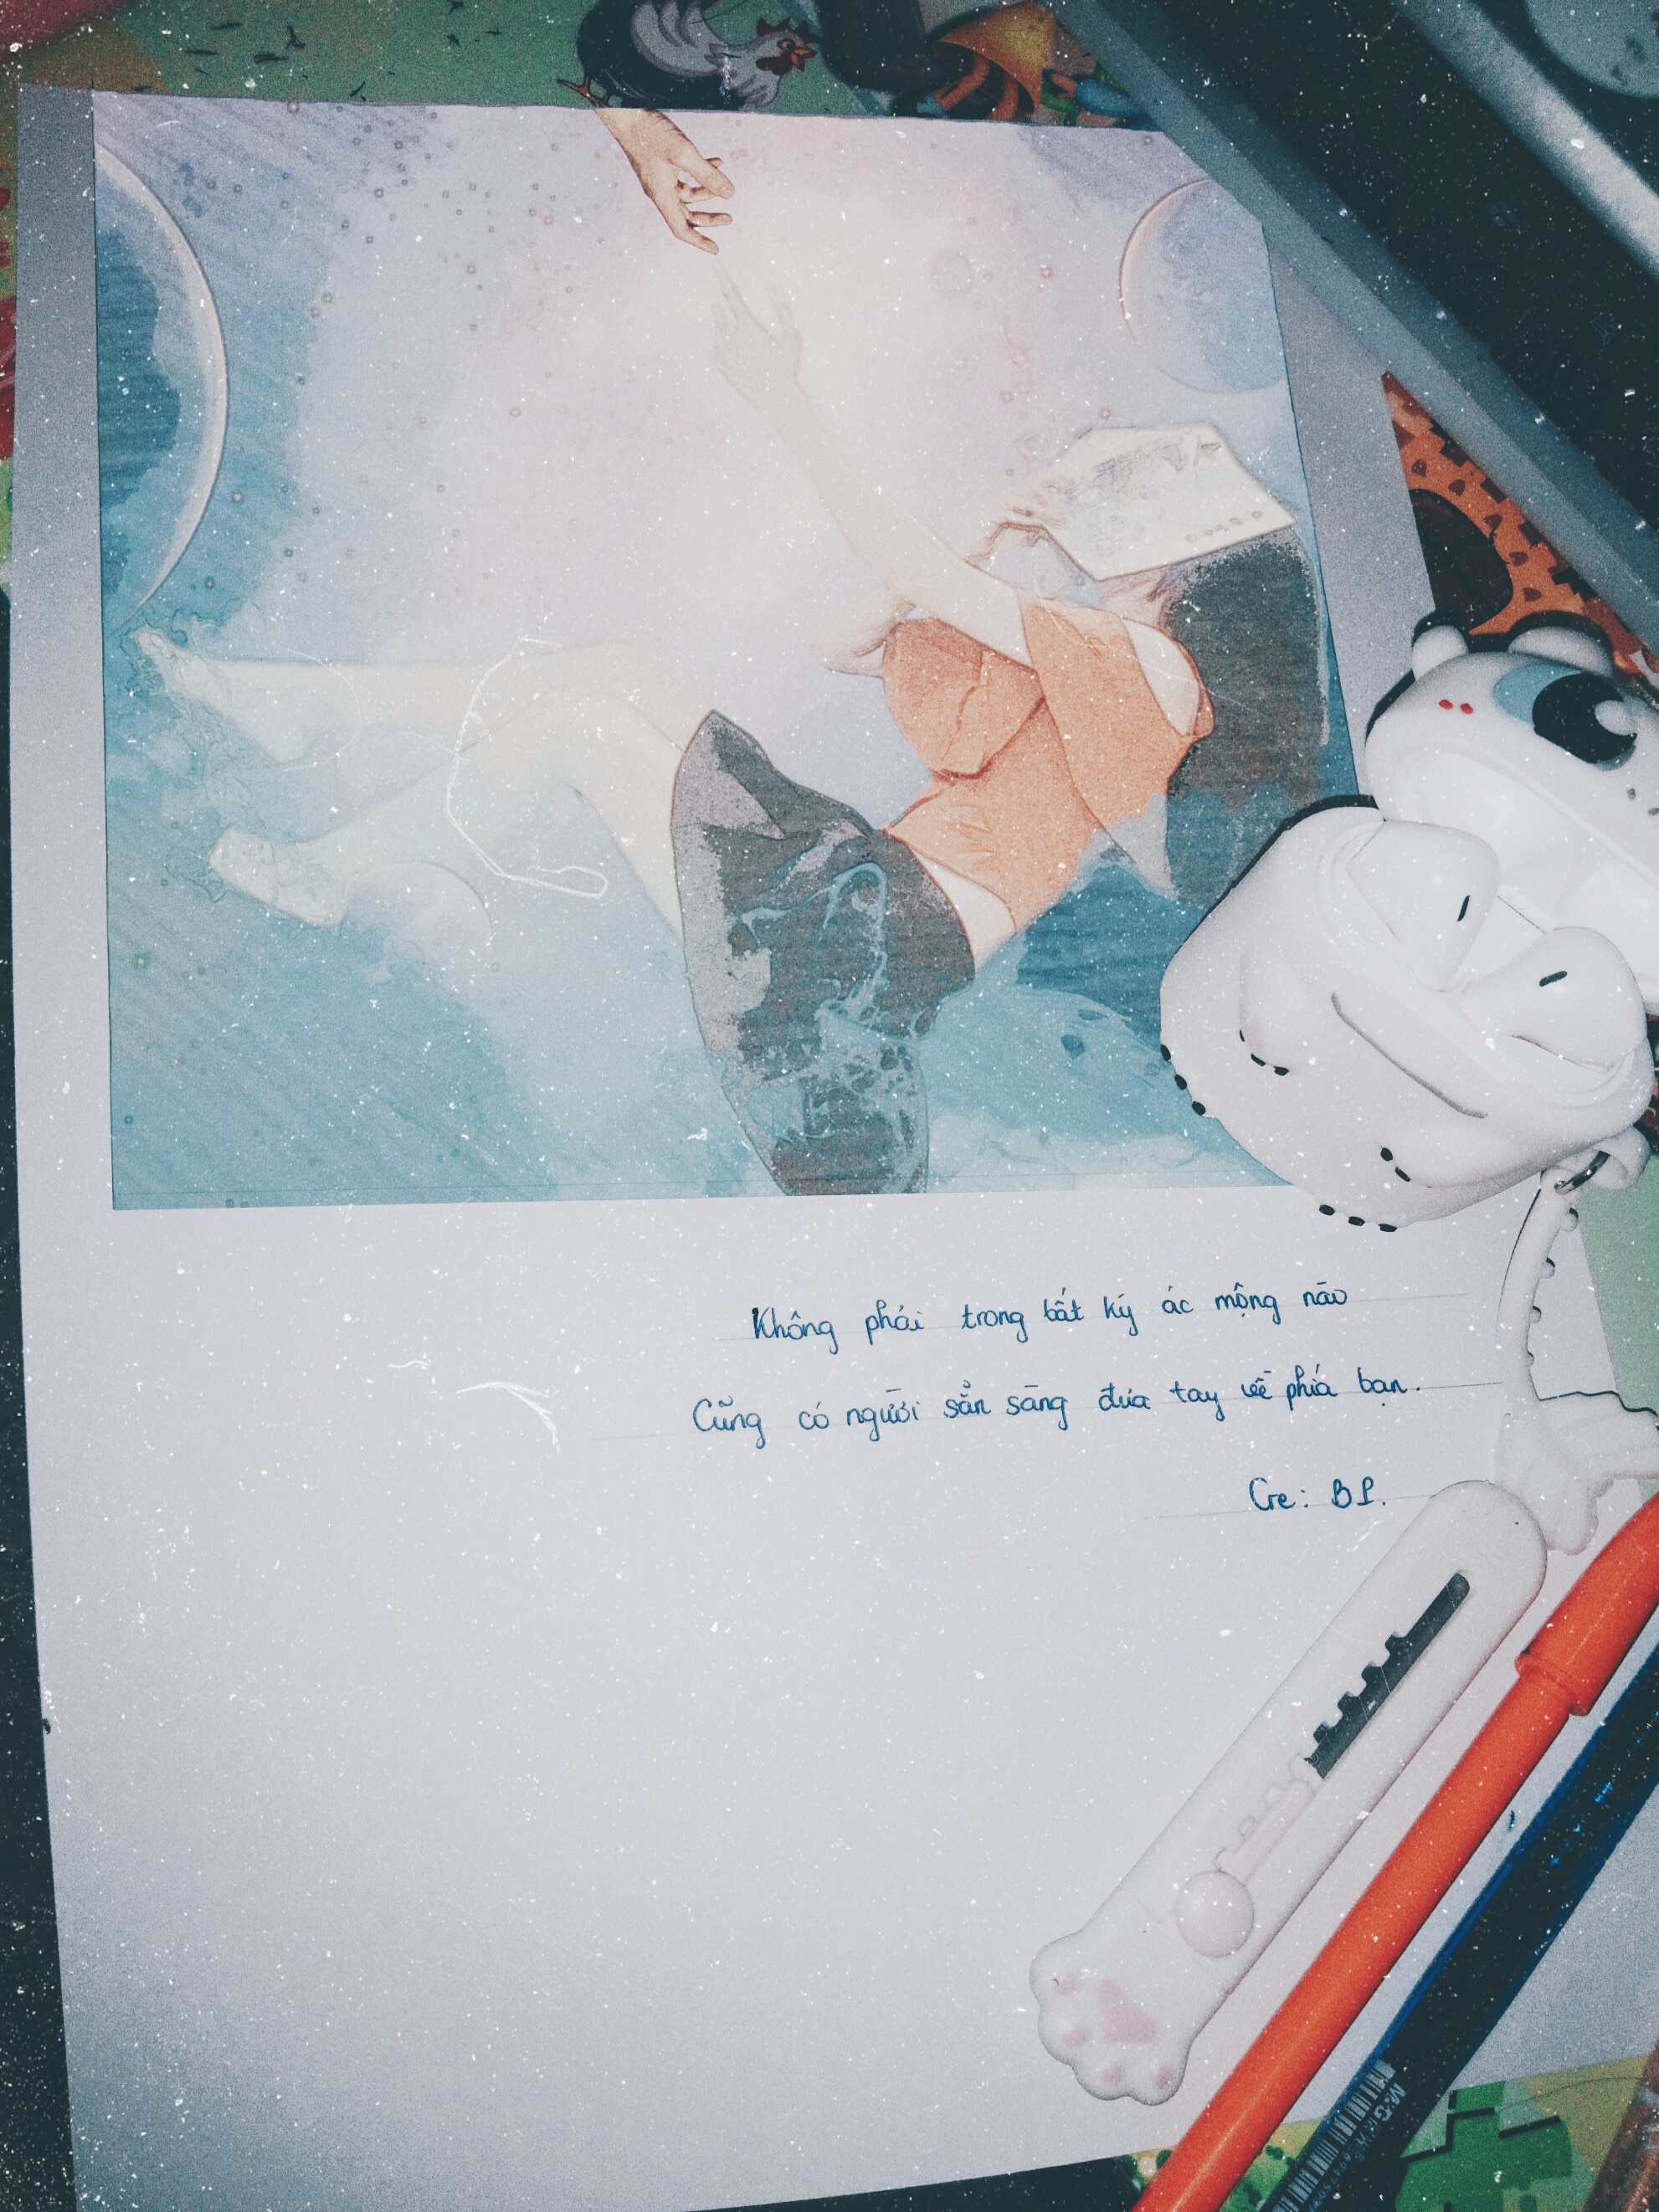 Không phải trong bất kỳ ác mộng nào
Cũng có người sẵn sàng đưa tay về phía bạn.
Cre: BP.
M&G